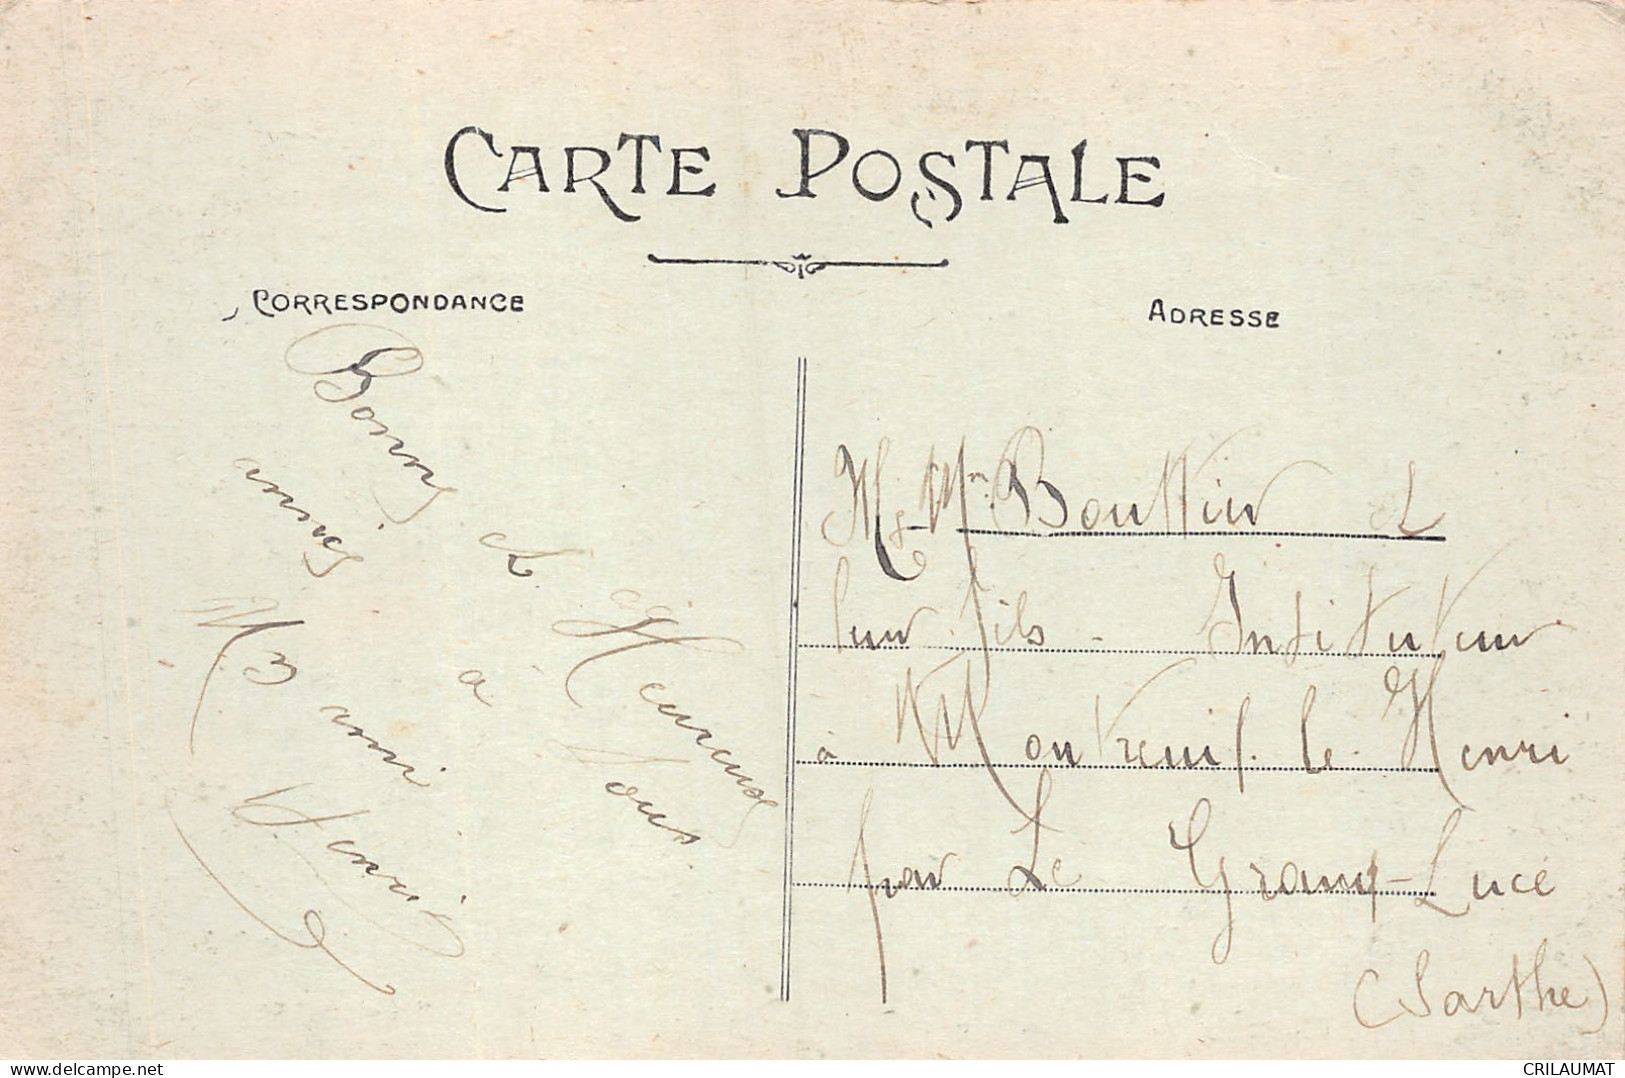 CARTE POSTALE
CORRESPONDANCE
ADRESSE
Bonne et Heureuse
année à tous.
Henri
M. Mme Bouttier et
leur fils - Instituteur
à Montreuil-le-Henri
par Le Grand-Lucé
(Sarthe)
delcampe.net
CRILAUMAT